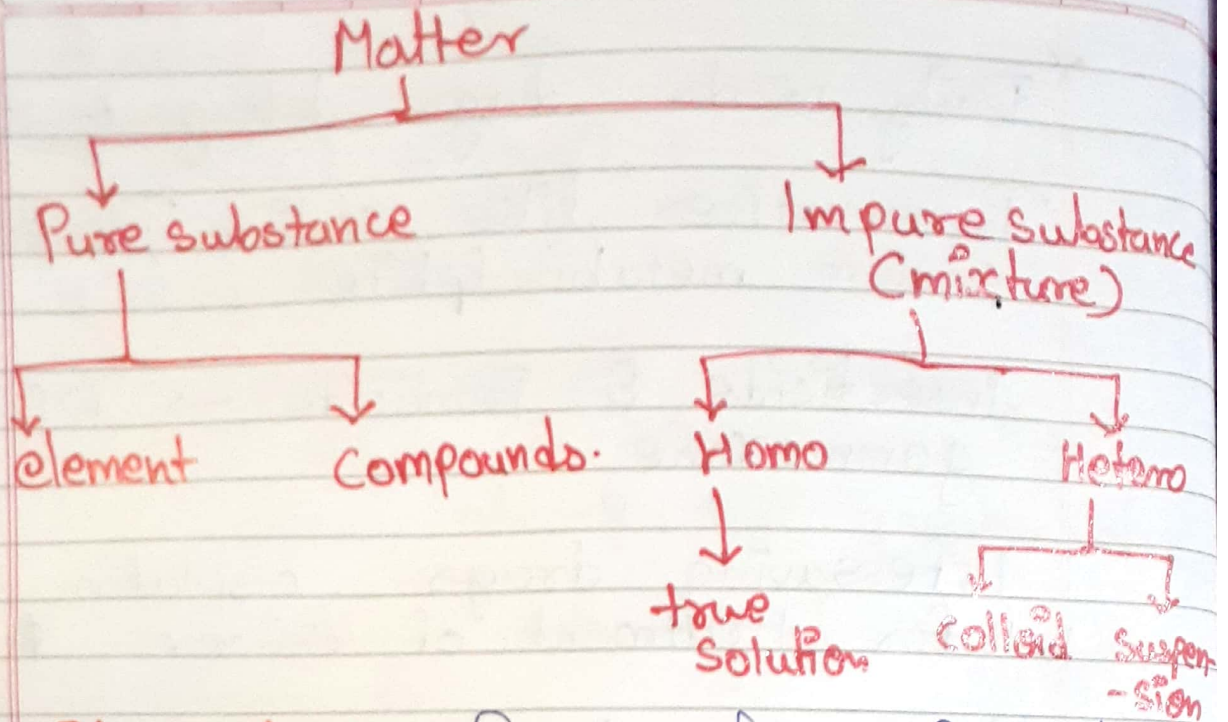 Matter
Pure substance
Impure substance
(mixture)
element
Compounds.
Homo
Hetero
true
Solution
Colloid
Suspen-
-sion